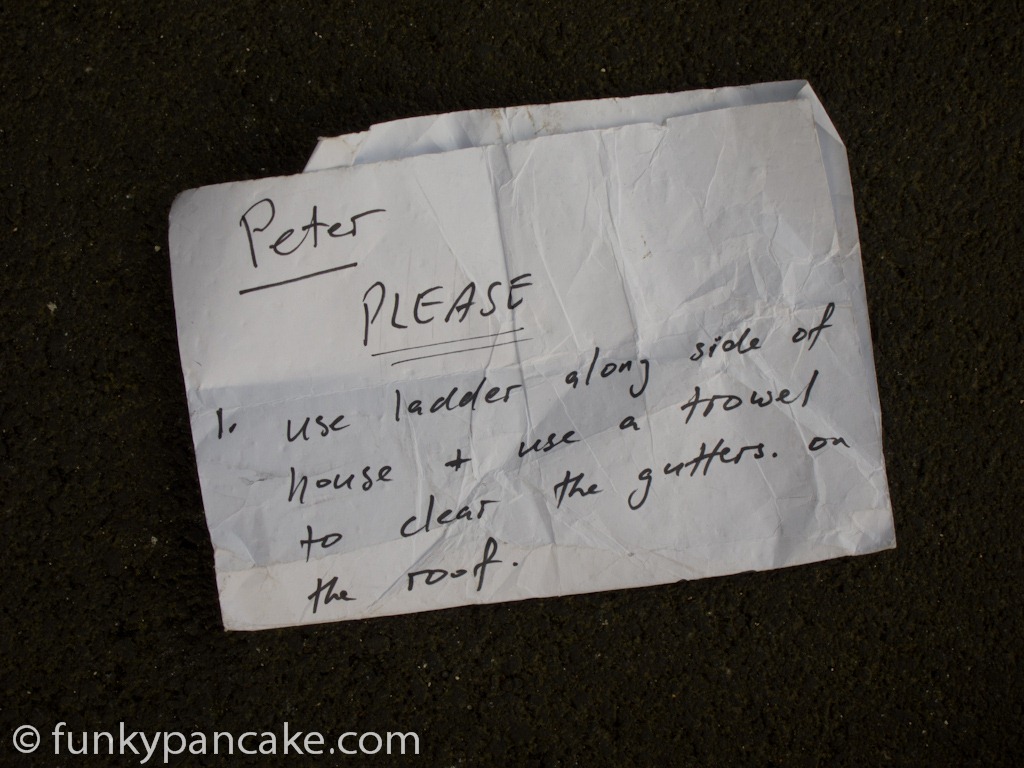 Peter
PLEASE
1. use ladder along side of
house + use a trowel
to clear the gutters. on
the roof.
© funkypancake.com